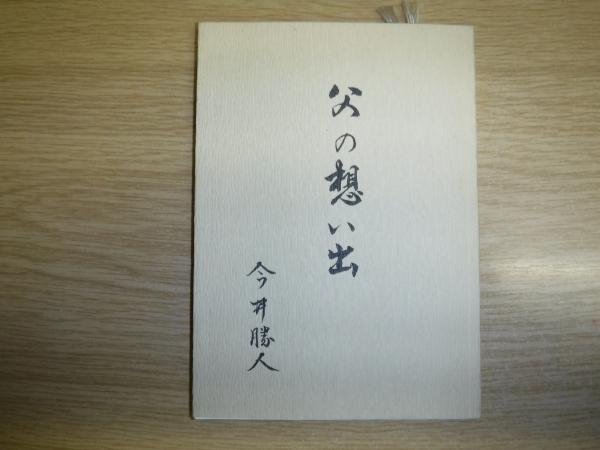 父の想い出
今井勝人